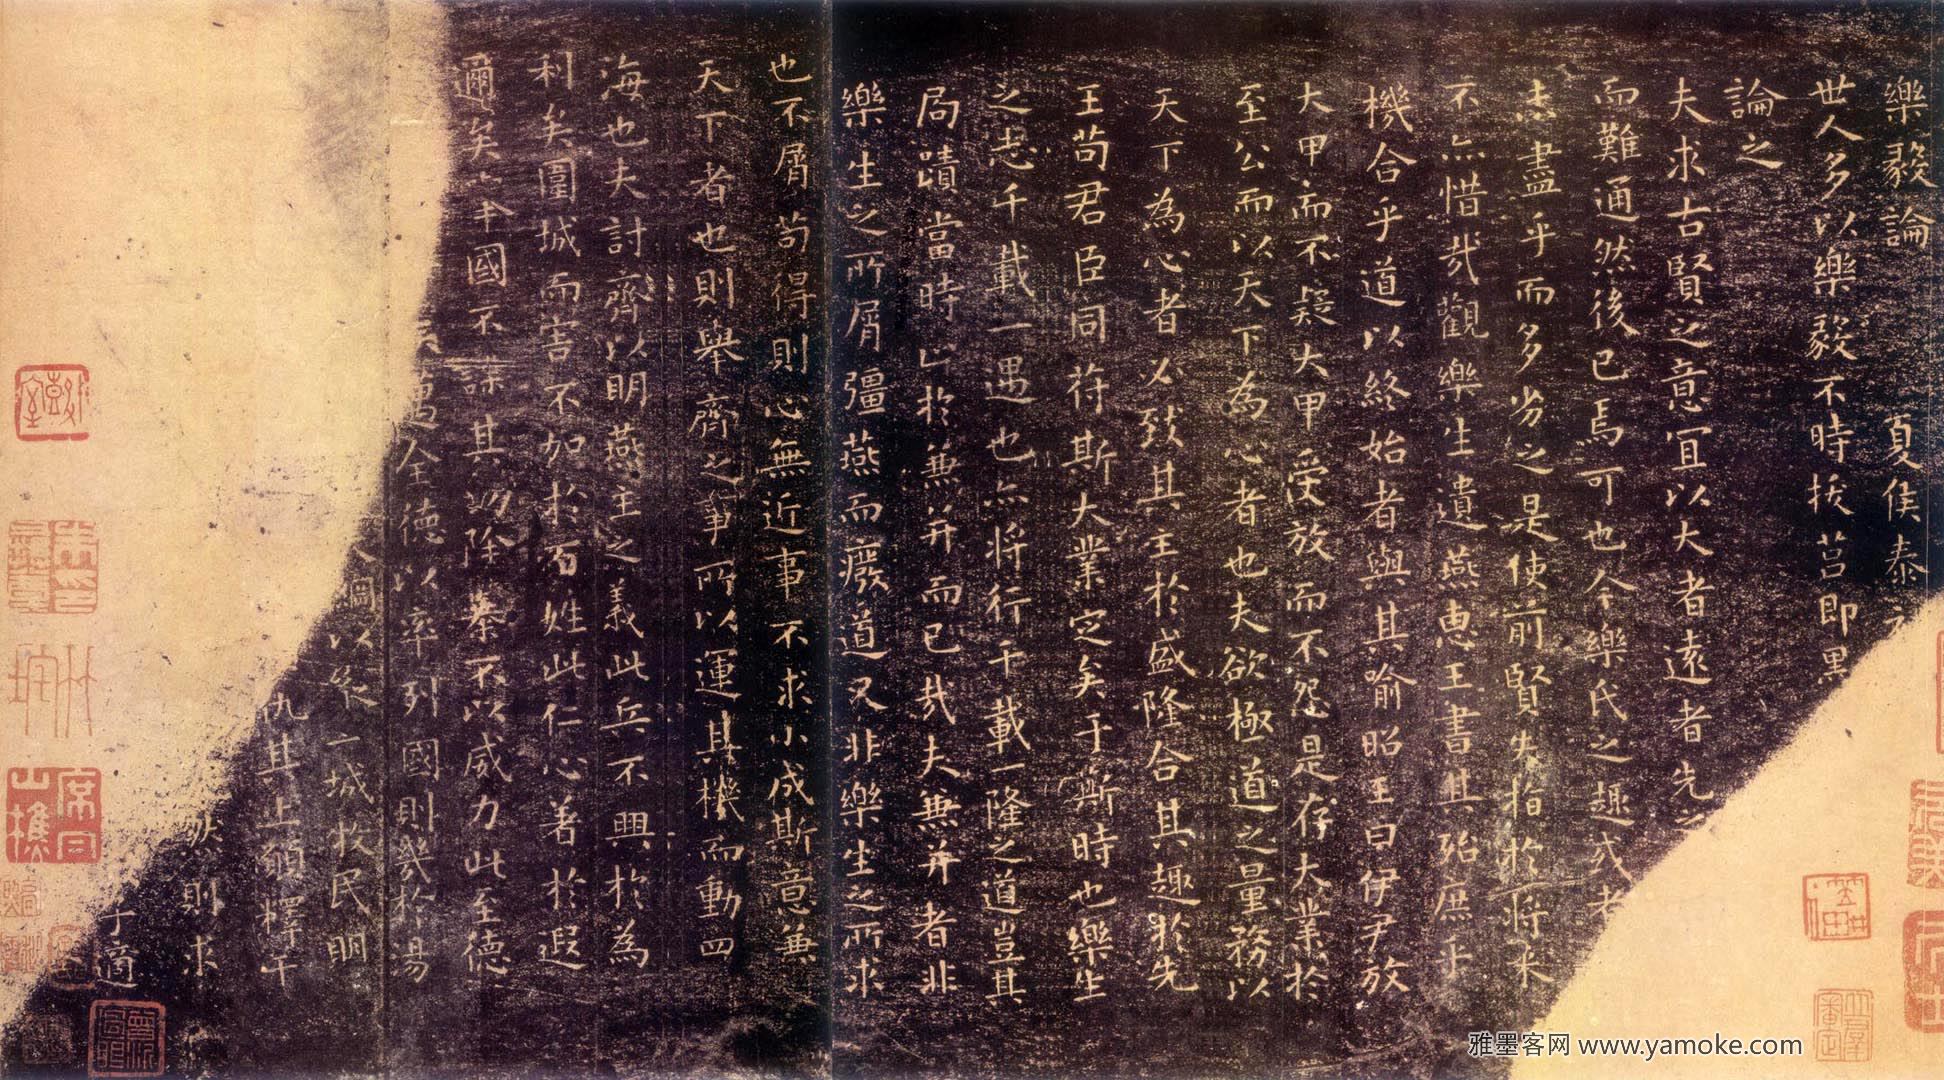 樂毅論 夏侯泰
世人多以樂毅不時拔莒即墨
論之
夫求古賢之意宜以大者遠者先之
而難通然後已焉可也今樂氏之趣或者
盡乎而多劣之是使前賢失指於將来
不亦惜哉觀樂生遺燕惠王書其殆庶乎
機合乎道以終始者與其喻昭王曰伊尹放
大甲而不疑大甲受放而不怨是存大業於
至公而以天下為心者也夫欲極道之量務以
天下為心者必致其主於盛隆合其趣於先
王苟君臣同符斯大業定矣于斯時也樂生
之志千載一遇也亦將行千載一隆之道豈其
局蹟當時止於兼并而已哉夫兼并者非
樂生之所屑彊燕而廢道又非樂生之所求
也不屑苟得則心無近事不求小成斯意兼
天下者也則舉齊之事所以運其機而動四
海也夫討齊以明燕主之義此兵不興於為
利矣圍城而害不加於百姓此仁心著於遐
邇矣國不謀其功除暴不以威力此至德
全德以率列國則幾於湯
以城牧民明
仇其上願釋干
則求
適
雅墨客网 www.yamoke.com